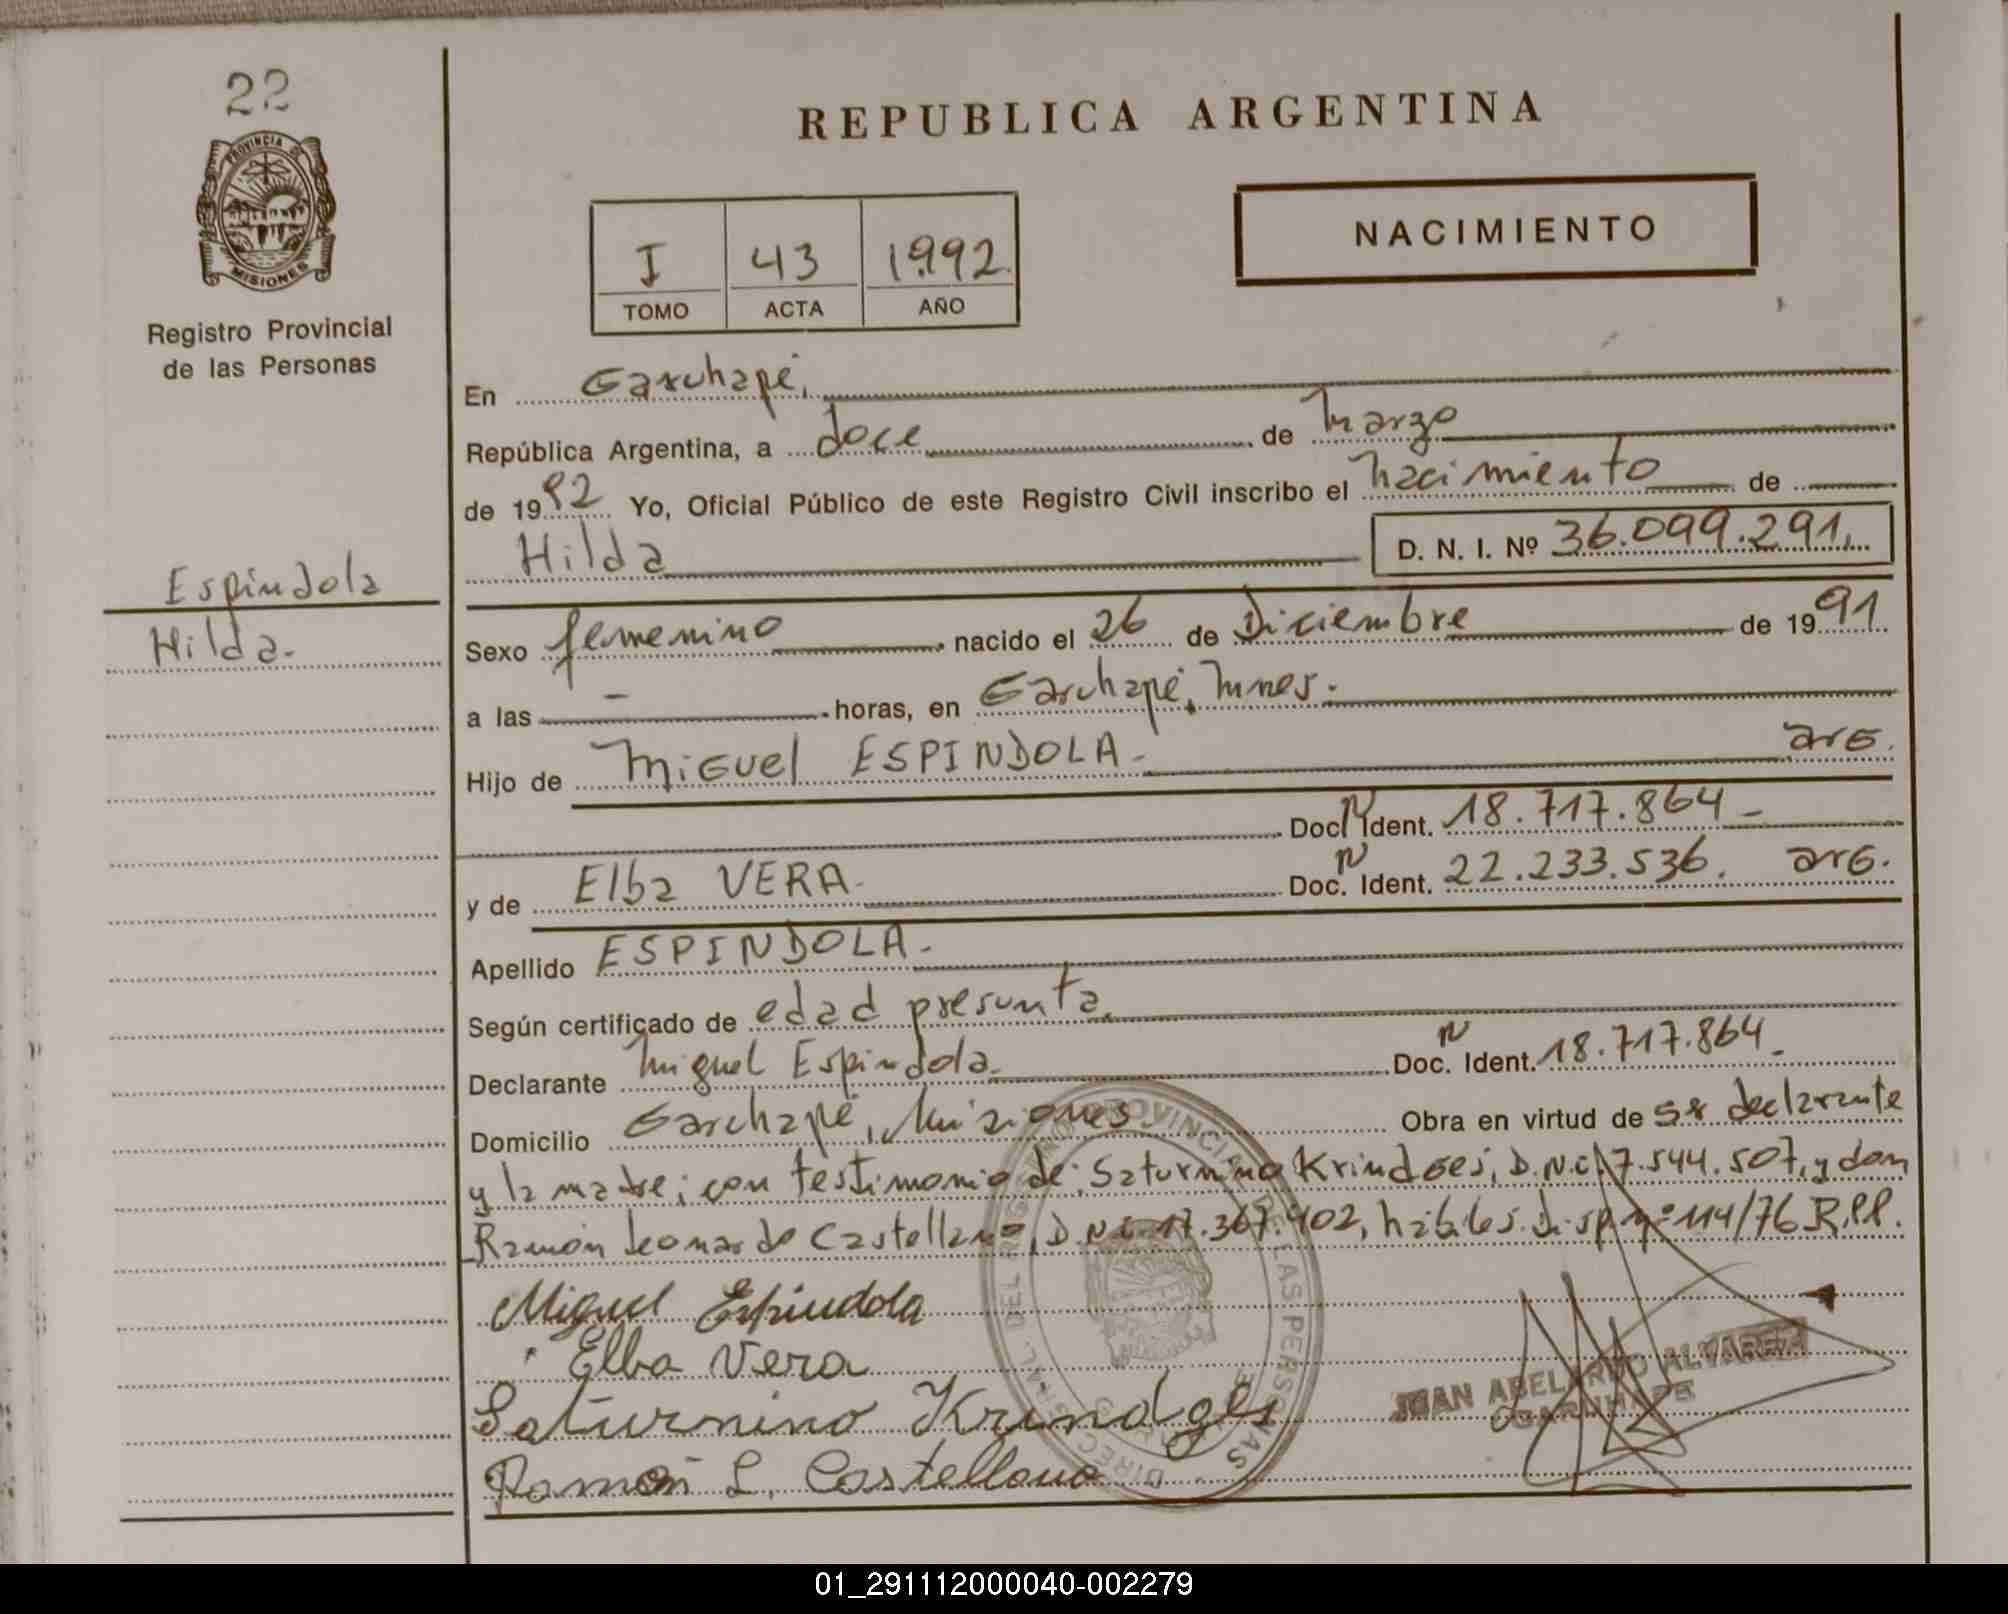 22
PROVINCIA DE
MISIONES
Registro Provincial
de las Personas
Espindola
Hilda.
REPUBLICA ARGENTINA
NACIMIENTO
I 43 1992
TOMO ACTA AÑO
En Garuhapé,
República Argentina, a doce de Marzo
de 1992 Yo, Oficial Público de este Registro Civil inscribo el nacimiento de
Hilda D. N. I. Nº 36.099.291.
Sexo femenino nacido el 26 de Diciembre de 1991
a las — horas, en Garuhapé, Mnes.
Hijo de Miguel ESPINDOLA - arg.
Doc. N Ident. 18.717.864 -
y de Elba VERA. Doc. N Ident. 22.233.536. arg.
Apellido ESPINDOLA -
Según certificado de edad presunta.
Declarante Miguel Espindola. Doc. N Ident. 18.717.864 -
Domicilio Garuhapé, Misiones Obra en virtud de ser declarante
y la madre; con testimonio de: Saturnino Krindges, D.N.I. 7.544.507, y don
Ramón Leonardo Castellano, D.N.I. 17.367.402, hábiles. Disp. nº 114/76 R.P.P.
Miguel Espindola
Elba Vera
Saturnino Krindges
Ramón L. Castellano
JUAN ABELARDO ALVAREZ
GARUHAPE
01_291112000040-002279